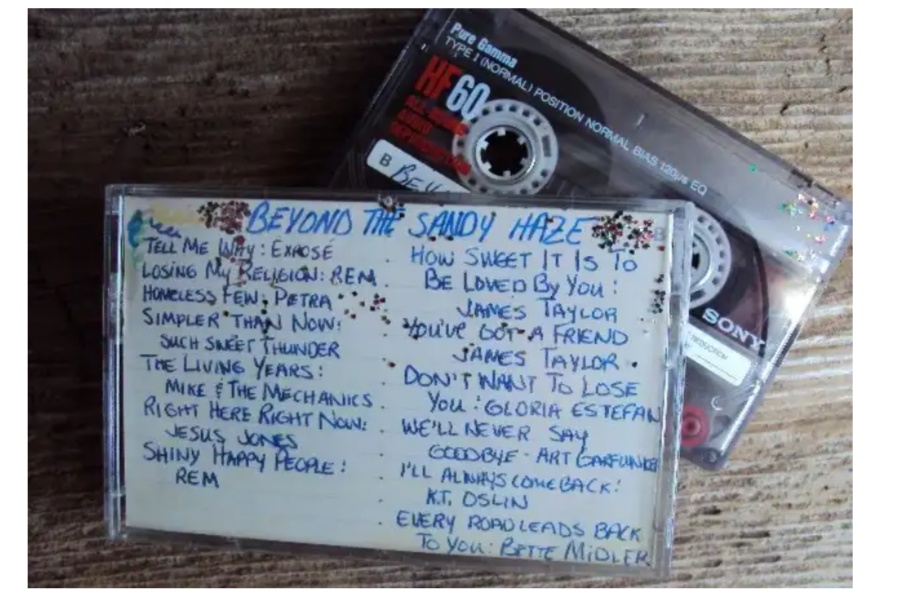 Pure Gamma
TYPE I (NORMAL) POSITION NORMAL BIAS 120µs EQ
HF60
B
SONY
BEYOND THE SANDY HAZE
TELL ME WHY: EXPOSÉ
LOSING MY RELIGION: REM
HOMELESS FEW: PETRA
SIMPLER THAN NOW:
SUCH SWEET THUNDER
THE LIVING YEARS:
MIKE & THE MECHANICS
RIGHT HERE RIGHT NOW:
JESUS JONES
SHINY HAPPY PEOPLE:
REM
HOW SWEET IT IS TO
BE LOVED BY YOU:
JAMES TAYLOR
YOU'VE GOT A FRIEND
JAMES TAYLOR
DON'T WANT TO LOSE
YOU: GLORIA ESTEFAN
WE'LL NEVER SAY
GOODBYE - ART GARFUNKEL
I'LL ALWAYS COME BACK:
K.T. OSLIN
EVERY ROAD LEADS BACK
TO YOU: BETTE MIDLER